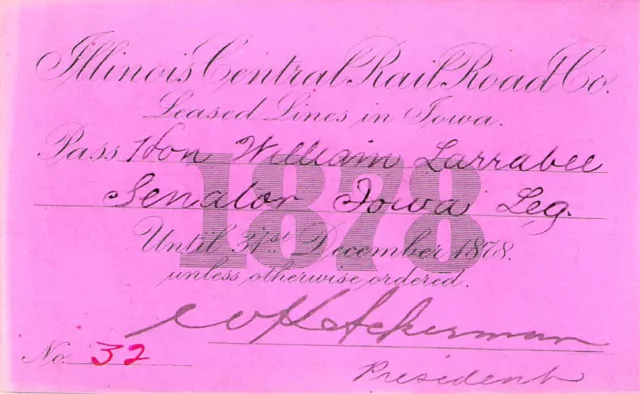 Illinois Central Rail Road Co.
Leased Lines in Iowa.
Pass Hon William Larrabee
Senator Iowa Leg.
1878
Until 31st December 1878.
unless otherwise ordered.
W K Ackerman
No. 32
President